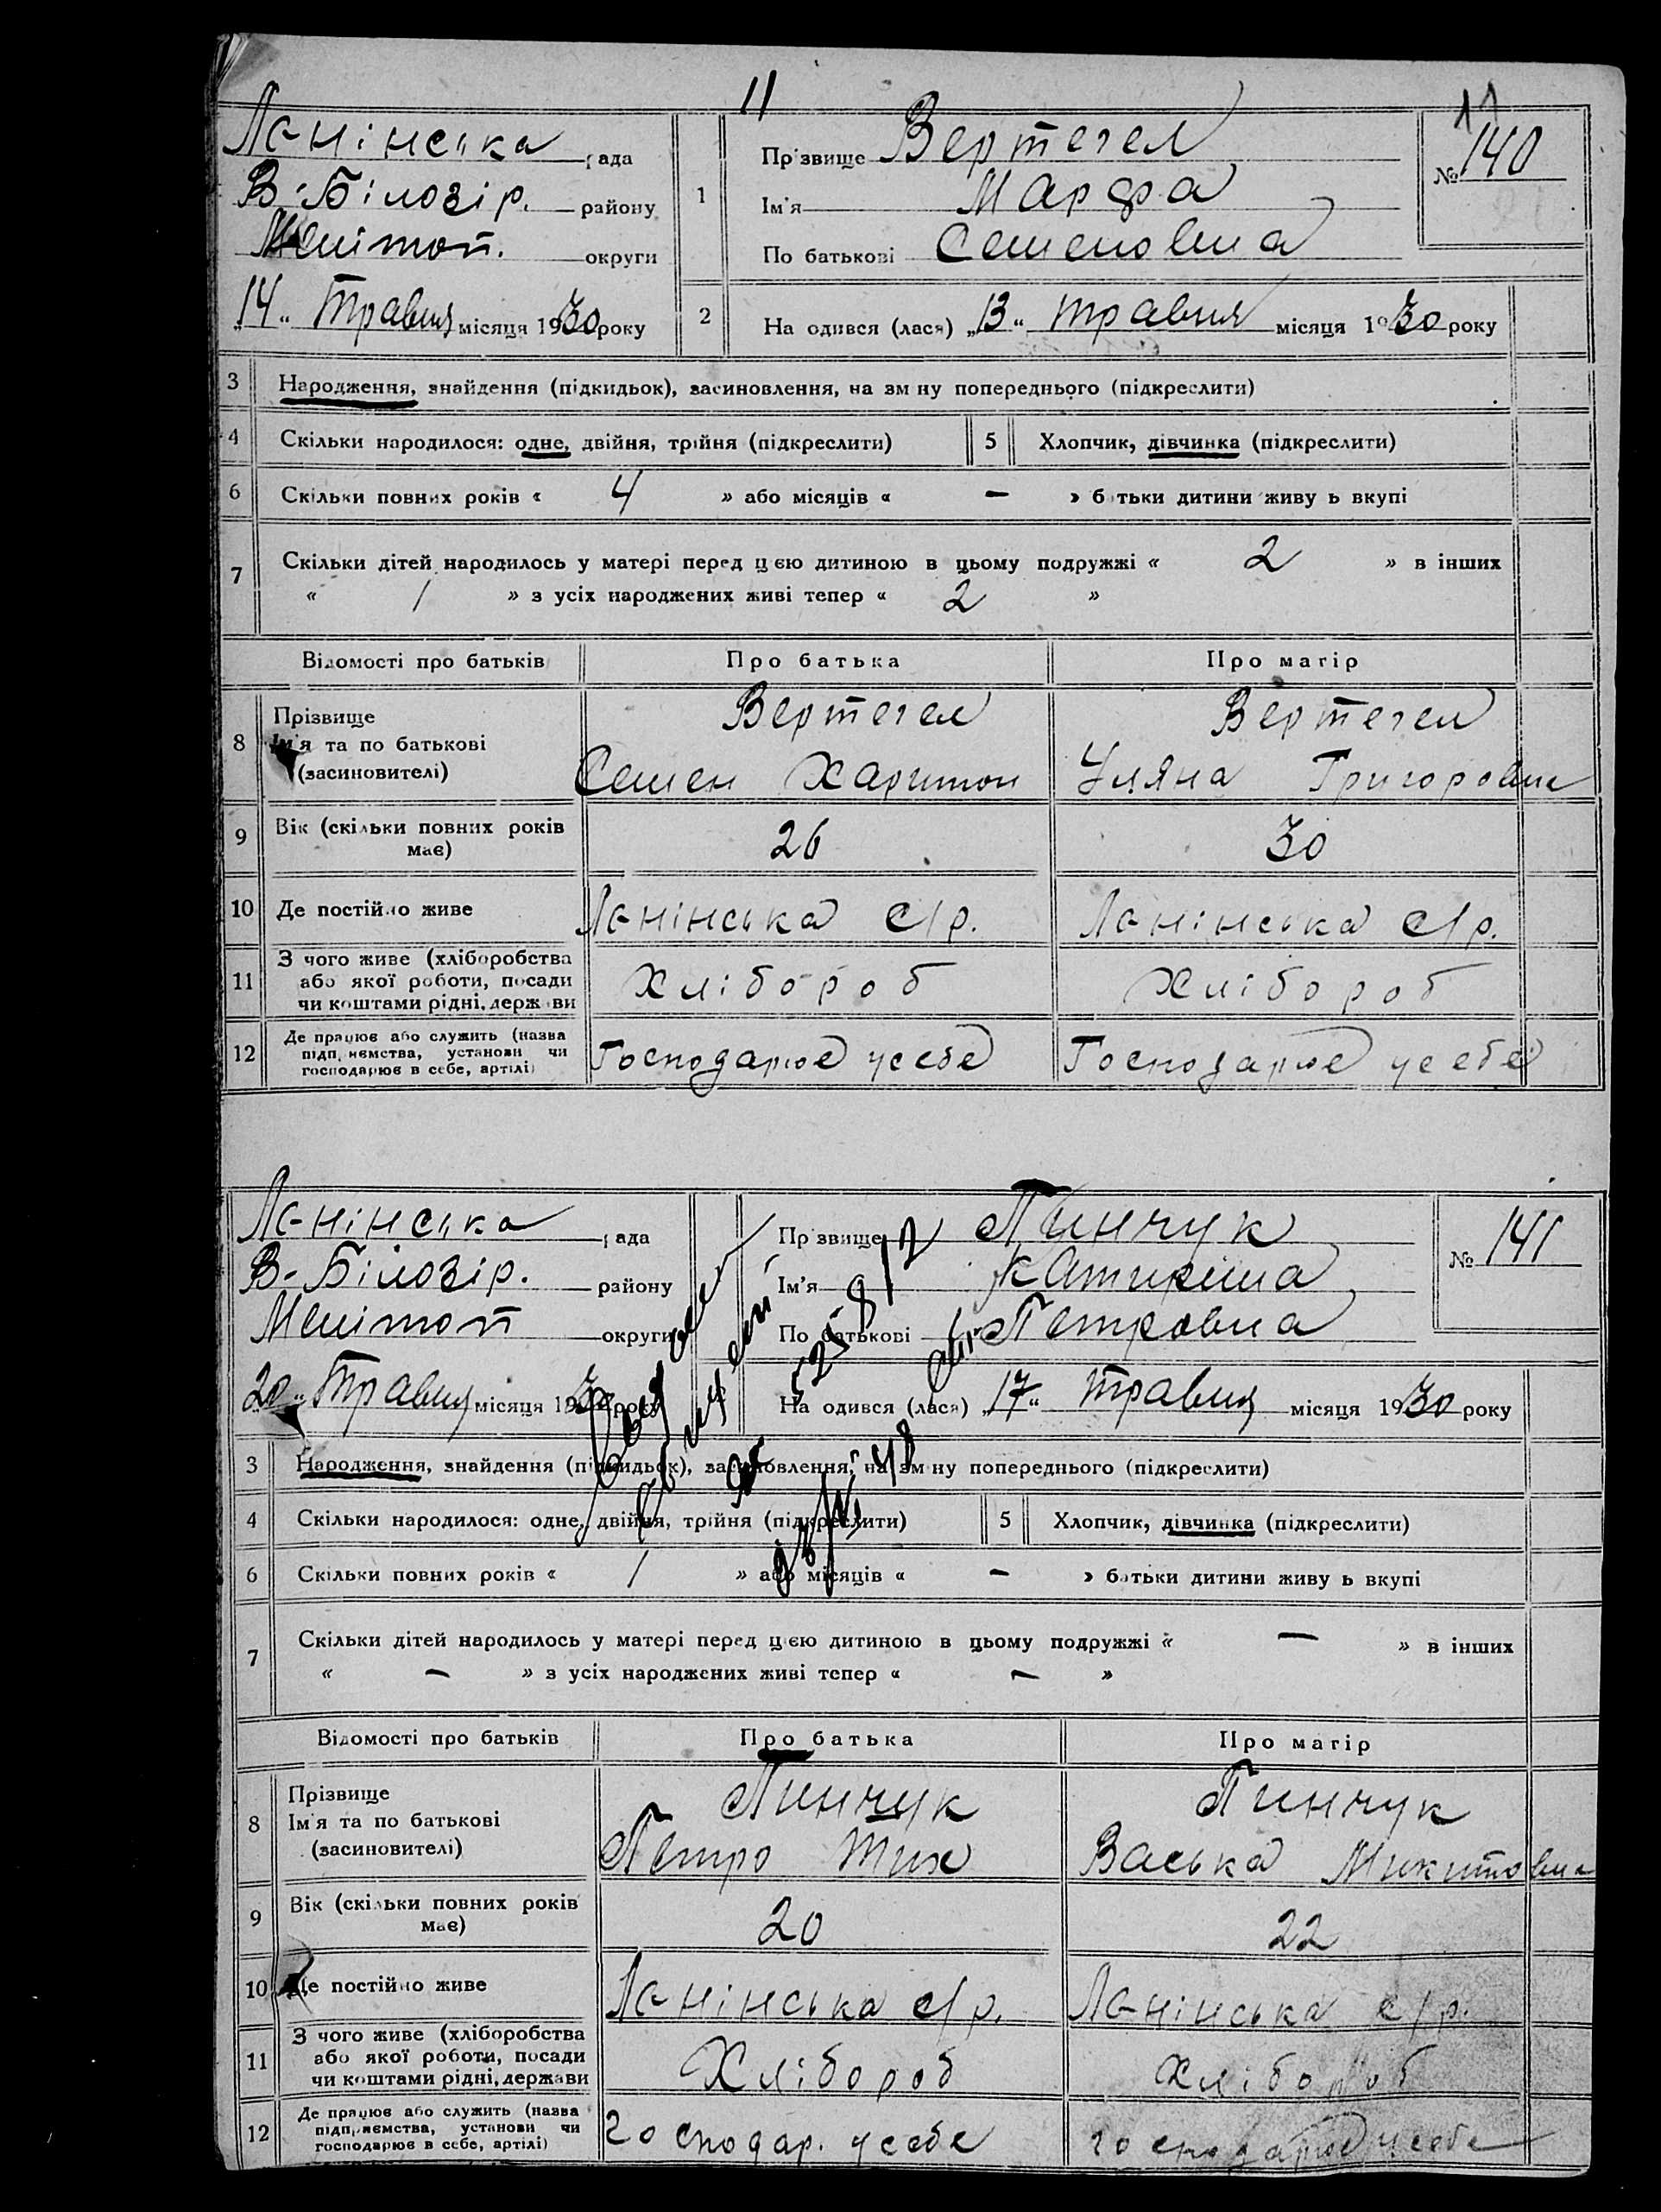 11
11
Ленінська рада
В-Білозір. району
Мелітоп. округи
„14“ Травня місяця 1930 року
1
Прізвище Вертегел
Ім'я Марфа
По батькові Семеновна
№ 140
2
На одився (лася) „13“ травня місяця 1930 року
3 Народження, знайдення (підкидьок), засиновлення, на зм ну попереднього (підкреслити)
4 Скільки народилося: одне, двійня, трійня (підкреслити) 5 Хлопчик, дівчинка (підкреслити)
6 Скільки повних років « 4 » або місяців « — » б тьки дитини живу ь вкупі
7 Скільки дітей народилось у матері перед цією дитиною в цьому подружжі « 2 » в інших
« 1 » з усіх народжених живі тепер « 2 »
Відомості про батьків Про батька Про матір
8 Прізвище Ім'я та по батькові (засиновителі)
Вертегел Вертегел
Семен Харитон Уляна Григоровна
9 Вік (скільки повних років має) 26 30
10 Де постійно живе Ленінська с/р. Ленінська с/р.
11 З чого живе (хліборобства
або якої роботи, посади
чи коштами рідні, держ ви
Хлібороб Хлібороб
12 Де працює або служить (назва
підп, иємства, установи чи
господарює в себе, артілі)
Господарює у себе Господарює у себе
Ленінська рада
В-Білозір. району
Мелітоп округи
„20“ Травня місяця 1930 року
Прізвище Пинчук
Ім'я Катирина
По батькові Петровна
№ 141
На одився (лася) „17“ травня місяця 1930 року
3 Народження, знайдення (підкидьок), засиновлення, на зм ну попереднього (підкреслити)
4 Скільки народилося: одне, двійня, трійня (підкреслити) 5 Хлопчик, дівчинка (підкреслити)
6 Скільки повних років « 1 » або місяців « — » батьки дитини живу ь вкупі
7 Скільки дітей народилось у матері перед цією дитиною в цьому подружжі « — » в інших
« — » з усіх народжених живі тепер « — »
Відомості про батьків Про батька Про матір
8 Прізвище
Ім'я та по батькові
(засиновителі)
Пинчук Пинчук
Петро Тих Васька Микитовна
9 Вік (скільки повних років має) 20 22
10 Де постійно живе Ленінська с/р. Ленінська с/р.
11 З чого живе (хліборобства
або якої роботи, посади
чи коштами рідні, держави
Хлібороб Хлібороб
12 Де працює або служить (назва
підприємства, установи чи
господарює в себе, артілі)
господар. у себе господарює у себе